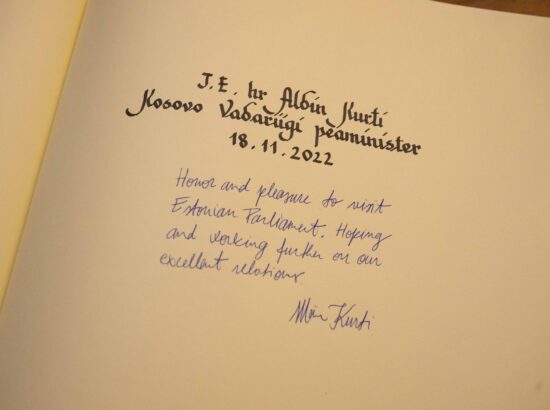 T. E. hr Albin Kurti
Kosovo Vabariigi peaminister
18.11.2022
Honor and pleasure to visit
Estonian Parliament. Hoping
and working further on our
excellent relations.
Albin Kurti